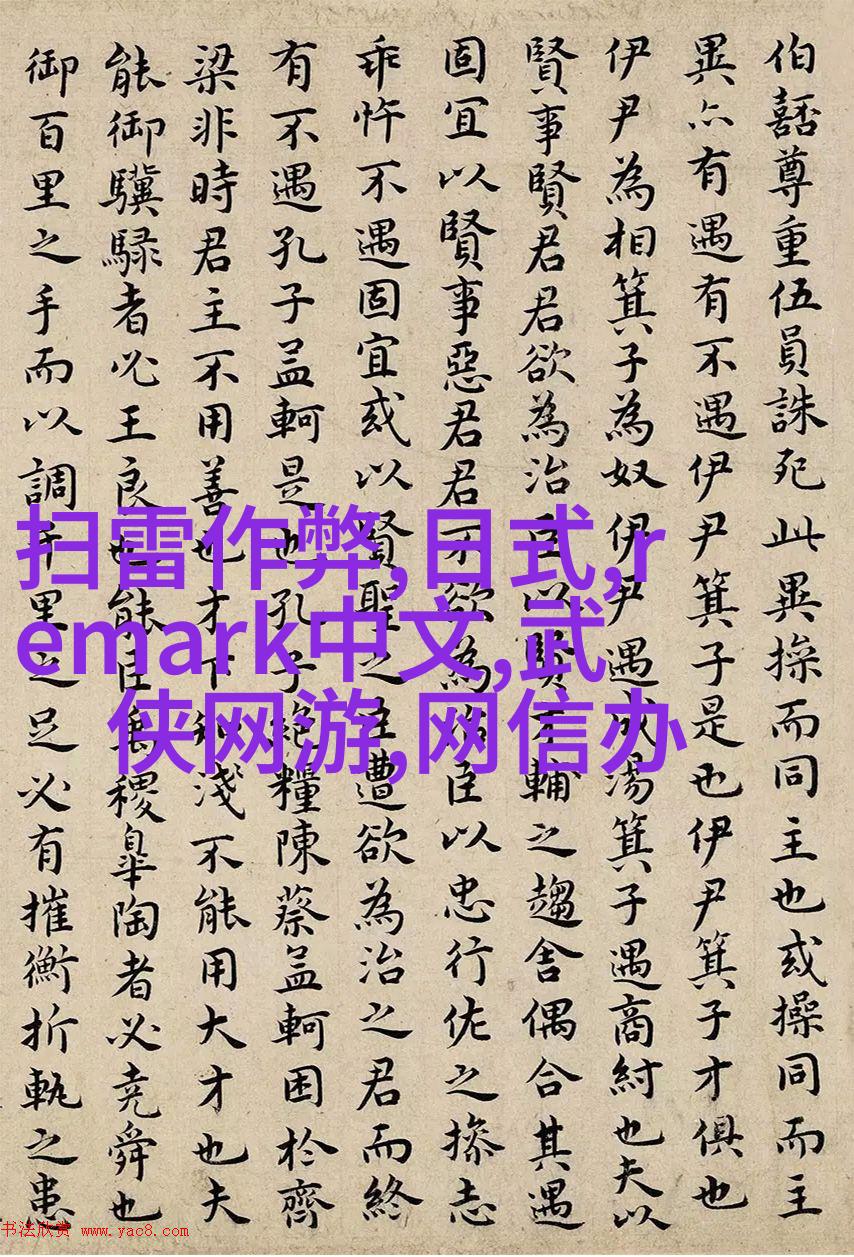 伯嚭尊重伍員誅死此異操而同主也或操同而主
異亦有遇有不遇伊尹箕子是也伊尹箕子才俱也
伊尹為相箕子為奴伊尹遇成湯箕子遇商紂也夫以
賢事賢君君欲為治臣以賢才輔之趨舍偶合其遇
固宜以賢事惡君君不欲為治臣以忠行佐之操志
乖忤不遇固宜或以賢聖之臣遭欲為治之君而終
有不遇孔子孟軻是也孔子絕糧陳蔡孟軻困於齊
梁非時君主不用善也才下知淺不能用大才也夫
能御驥騄者必王良也能臣禹稷皋陶者必堯舜也
御百里之手而以調千里之足必有摧衡折軛之患
扫雷作弊,日式,r
emark中文,武
侠网游,网信办
书法欣赏 www.yac8.com